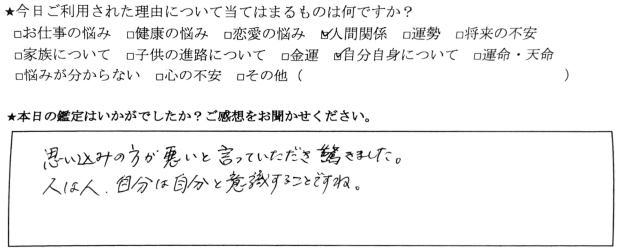 ★今日ご利用された理由について当てはまるものは何ですか？
□お仕事の悩み □健康の悩み □恋愛の悩み ☑人間関係 □運勢 □将来の不安
□家族について □子供の進路について □金運 ☑自分自身について □運命・天命
□悩みが分からない □心の不安 □その他（ ）
★本日の鑑定はいかがでしたか？ご感想をお聞かせください。
思い込みの方が悪いと言っていただき驚きました。
人は人、自分は自分と意識することですね。